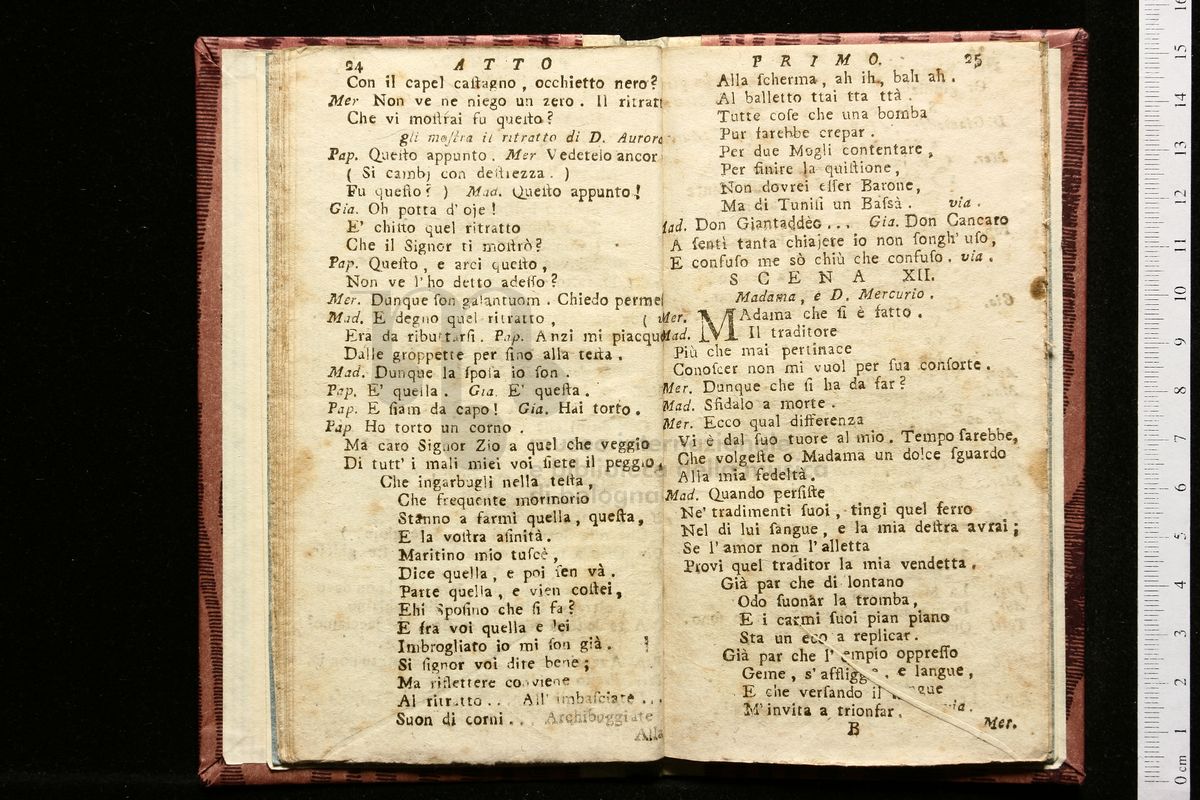 24 ATTO
Con il capel caſtagno, occhietto nero?
Mer Non ve ne niego un zero. Il ritratt
Che vi moſtrai fu queſto?
gli moſtra il ritratto di D. Aurora
Pap. Queſto appunto. Mer Vedetelo ancor
( Si cambj con deſtrezza. )
Fu queſto? ) Mad. Queſto appunto!
Gia. Oh potta d'oje!
E' chiſto quel ritratto
Che il Signor ti moſtrò?
Pap. Queſto, e arci queſto,
Non ve l'ho detto adeſſo?
Mer. Dunque ſon galantuom. Chiedo permeſ
Mad. E degno quel ritratto, (
Era da ributtarſi. Pap. Anzi mi piacque
Dalle groppette per ſino alla teſta.
Mad. Dunque la ſpoſa io ſon.
Pap. E' quella. Gia. E' queſta.
Pap. E ſiam da capo! Gia. Hai torto.
Pap Ho torto un corno.
Ma caro Signor Zio a quel che veggio
Di tutt' i mali miei voi ſiete il peggio,
Che ingarbugli nella teſta,
Che frequente mormorio
Stanno a farmi quella, queſta,
E la voſtra aſinità.
Maritino mio tuſcè,
Dice quella, e poi ſen và.
Parte quella, e vien coſtei,
Ehi Spoſino che ſi fa?
E fra voi quella e lei
Imbrogliato io mi ſon già.
Si ſignor voi dite bene;
Ma riflettere conviene
Al ritratto.. All' imbaſciate...
Suon di corni... Archibuggiate
Alla
PRIMO. 25
Alla ſcherma, ah ih, bah ah.
Al balletto ttai tta ttà.
Tutte coſe che una bomba
Pur farebbe crepar.
Per due Mogli contentare,
Per finire la quiſtione,
Non dovrei eſſer Barone,
Ma di Tuniſi un Baſsà. via.
Mad. Don Giantaddèo... Gia. Don Cancaro
A ſentì tanta chiajete io non ſongh' uſo,
E confuſo me sò chiù che confuſo. via.
SCENA XII.
Madama, e D. Mercurio.
Mer. MAdama che ſi è fatto.
Mad. Il traditore
Più che mai pertinace
Conoſcer non mi vuol per ſua conſorte.
Mer. Dunque che ſi ha da far?
Mad. Sfidalo a morte.
Mer. Ecco qual differenza
Vi è dal ſuo tuore al mio. Tempo ſarebbe,
Che volgeſte o Madama un dolce ſguardo
Alla mia fedeltà.
Mad. Quando perſiſte
Ne' tradimenti ſuoi, tingi quel ferro
Nel di lui ſangue, e la mia deſtra avrai;
Se l'amor non l'alletta
Provi quel traditor la mia vendetta.
Già par che di lontano
Odo ſuonar la tromba,
E i carmi ſuoi pian piano
Sta un eco a replicar.
Già par che l'empio oppreſſo
Geme, s'affligge, e langue,
E che verſando il ſangue
M'invita a trionfar. via.
B Mer.
0 cm 1 2 3 4 5 6 7 8 9 10 11 12 13 14 15 16